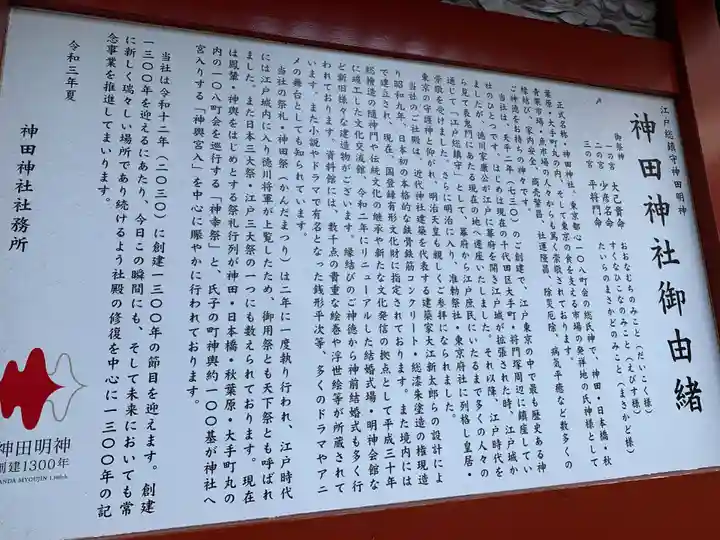 江戸総鎮守神田明神
神田神社御由緒
御祭神
一の宮 大己貴命 おおなむちのみこと（だいこく様）
二の宮 少彦名命 すくなひこなのみこと（えびす様）
三の宮 平将門命 たいらのまさかどのみこと（まさかど様）
正式名称・神田神社。東京都心一〇八町会の総氏神で、神田・日本橋・秋
葉原・大手町丸の内、そして東京の食を支える市場の発祥地の氏神様として
青果市場・魚市場の人々からも篤く崇敬されております。
縁結び、家内安全、商売繁昌、社運隆昌、除災厄除、病気平癒など数多くの
ご神徳をお持ちの神々です。
当社は、天平二年（七三〇）のご創建で、江戸東京の中で最も歴史ある神
社のひとつです。はじめは現在の千代田区大手町・将門塚周辺に鎮座してい
ましたが、徳川家康公が江戸に幕府を開き江戸城が拡張された時、江戸城か
ら見て表鬼門にあたる現在の地へ遷座いたしました。それ以降、江戸時代を
通じて「江戸総鎮守」として、幕府から江戸庶民にいたるまで多くの人々の
崇敬を受けました。さらに明治に入り、准勅祭社・東京府社に列格し皇居・
東京の守護神と仰がれ、明治天皇も親しくご参拝になられました。
当社のご社殿は、近代神社建築を代表する建築家大江新太郎らの設計によ
り昭和九年、日本初の本格的な鉄骨鉄筋コンクリート・総漆朱塗造の権現造
で建立され、現在、国登録有形文化財に指定されております。また境内には
総檜造の隨神門や伝統文化の継承や新たな文化発信の拠点として平成三十年
に竣工した文化交流館、令和二年にリニューアルした結婚式場・明神会館な
ど新旧様々な建造物がございます。縁結びのご神徳から神前結婚式も多く行
われております。資料館には、数千点の貴重な絵巻や浮世絵等が所蔵されて
います。また小説やドラマで有名となった銭形平次等、多くのドラマやアニ
メの舞台としても知られています。
当社の祭礼・神田祭（かんだまつり）は二年に一度執り行われ、江戸時代
には江戸城内に入り徳川将軍が上覧したため、御用祭とも天下祭とも呼ばれ
ました。また日本三大祭・江戸三大祭の一つにも数えられております。現在
は鳳輦・神輿をはじめとする祭礼行列が神田・日本橋・秋葉原・大手町丸の
内の一〇八町会を巡行する「神幸祭」と、氏子の町神輿約一〇〇基が神社へ
宮入りする「神輿宮入」を中心に賑やかに行われております。
当社は令和十二年（二〇三〇）に創建一三〇〇年の節目を迎えます。創建
一三〇〇年を迎えるにあたり、今日この瞬間にも、そして未来においても常
に新しく瑞々しい場所であり続けるよう社殿の修復を中心に一三〇〇年の記
念事業を推進してまいります。
令和三年夏
神田神社社務所
神田明神
創建1300年
KANDA MYOUJIN 1,300th